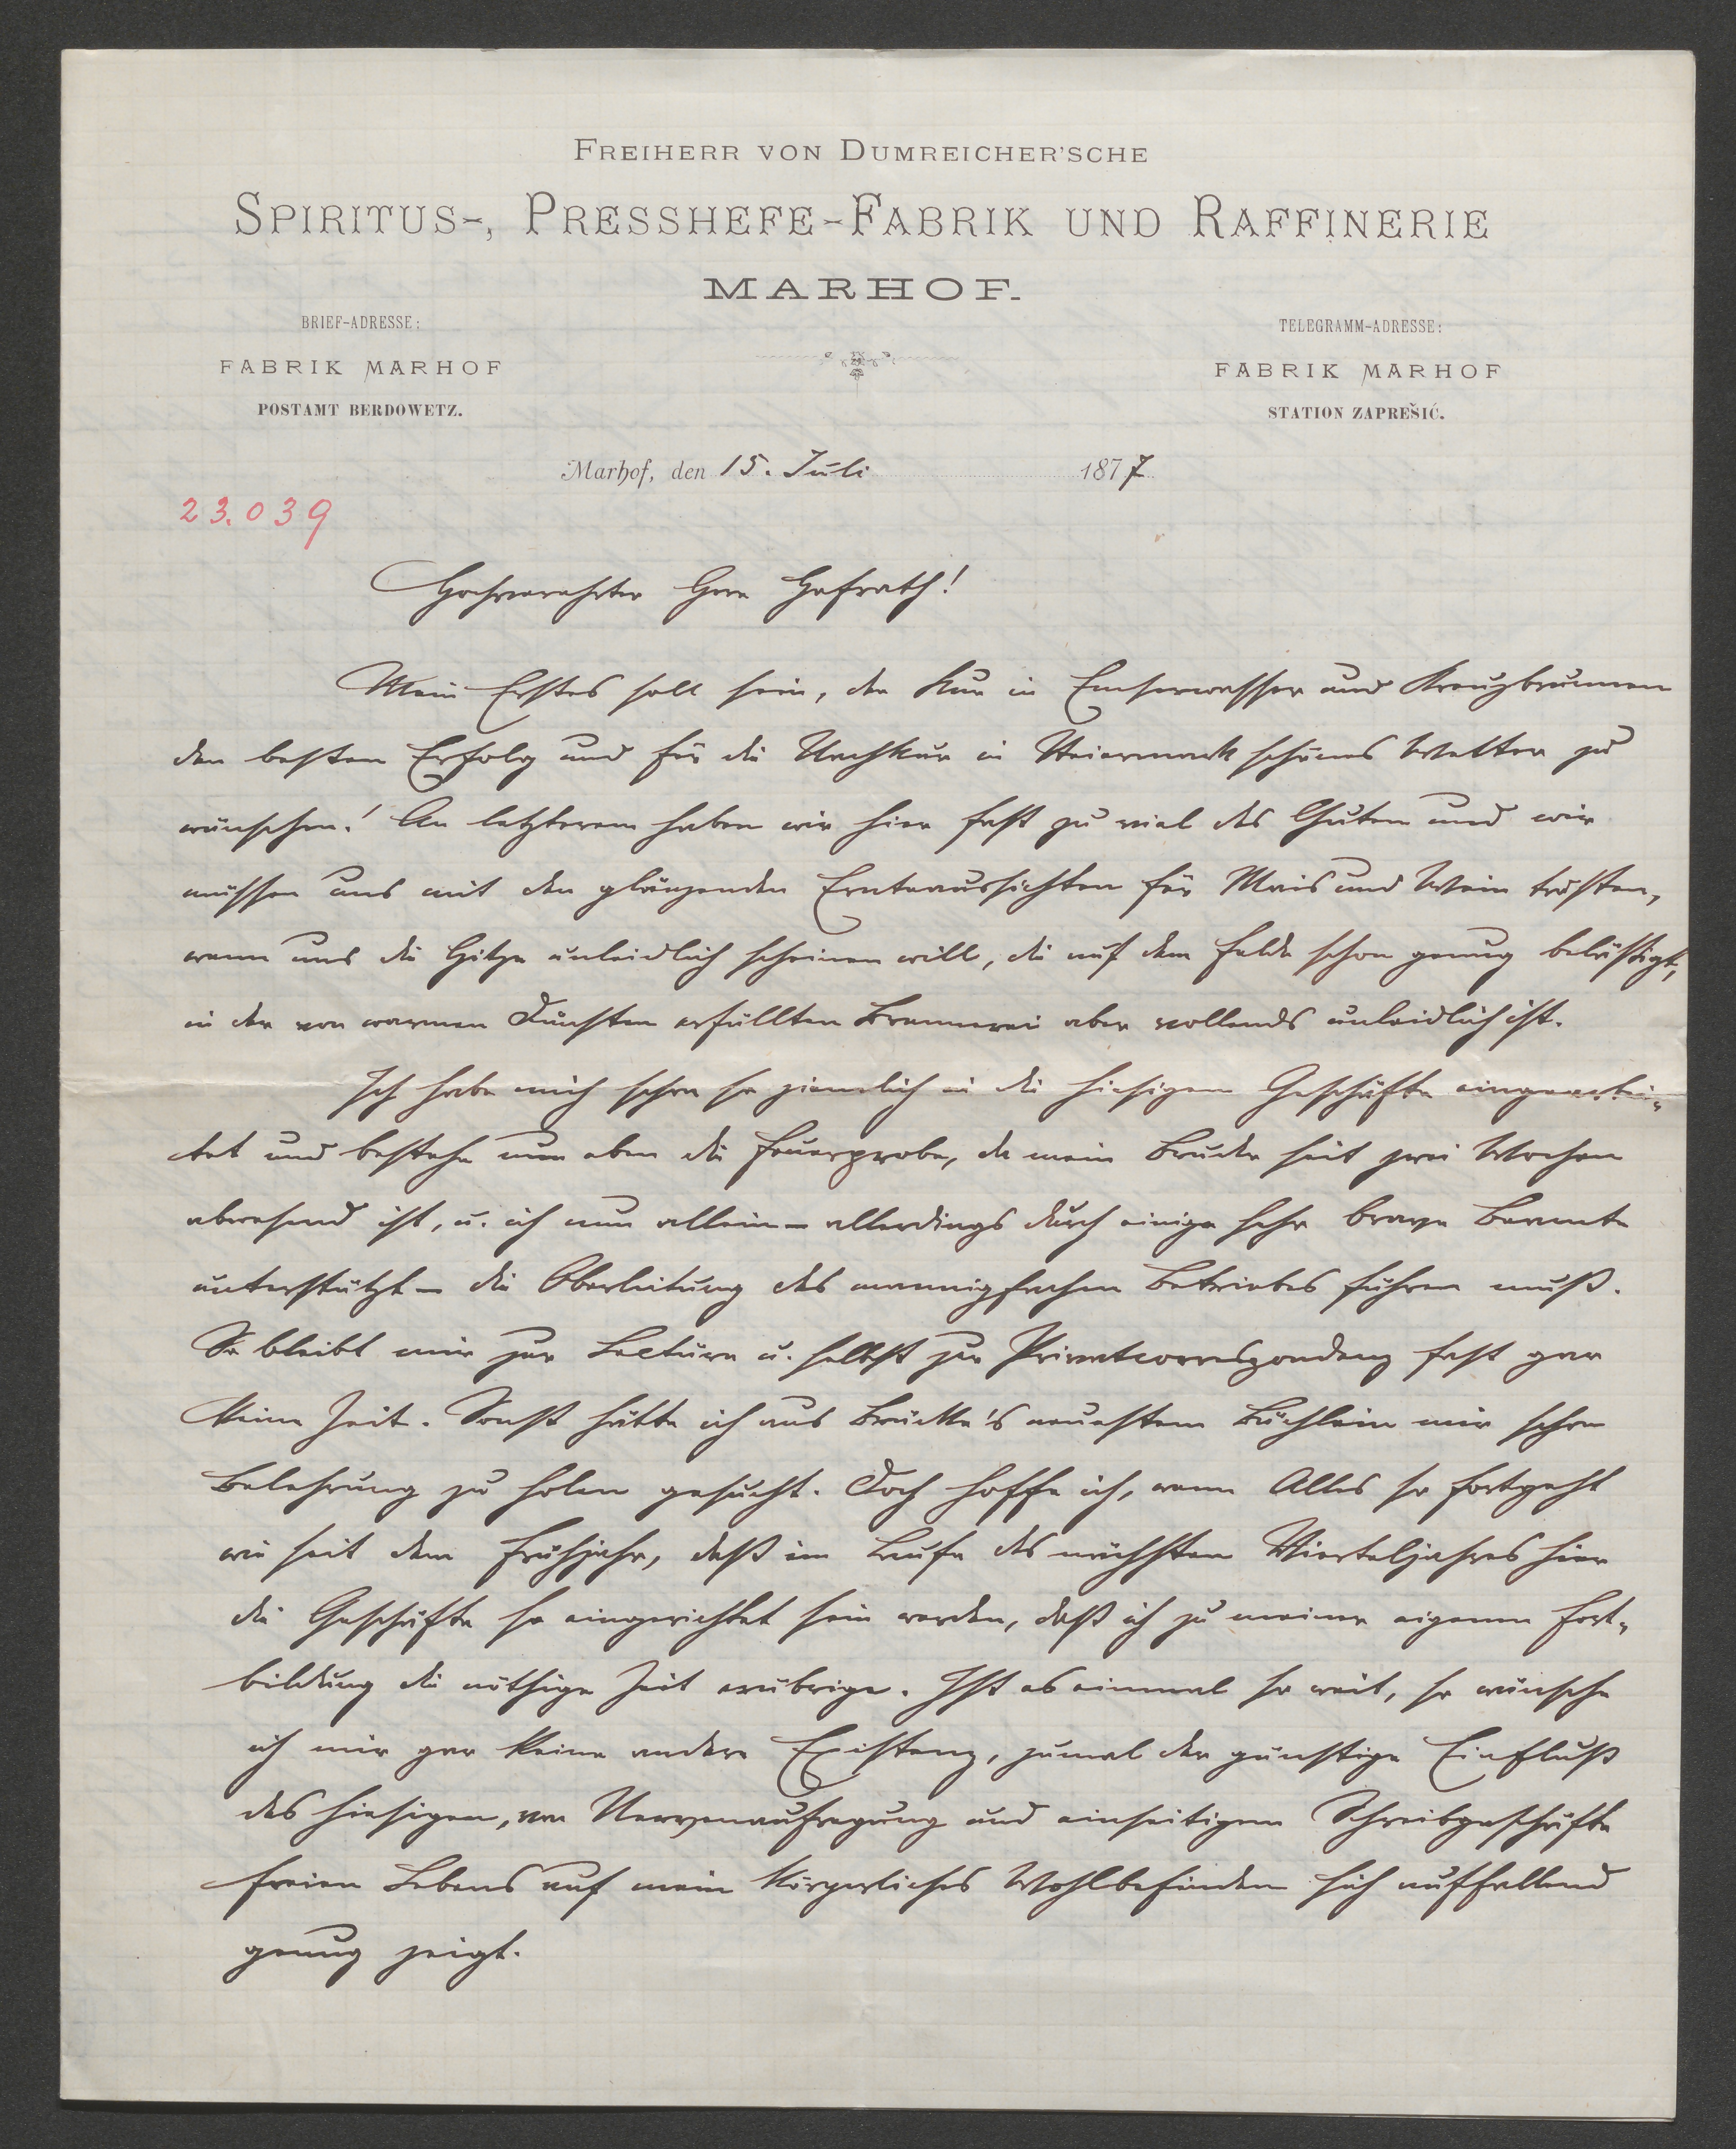 FREIHERR VON DUMREICHER'SCHE
SPIRITUS-, PRESSHEFE-FABRIK UND RAFFINERIE
MARHOF.
BRIEF-ADRESSE:
FABRIK MARHOF
POSTAMT BERDOWETZ.
TELEGRAMM-ADRESSE:
FABRIK MARHOF
STATION ZAPREŠIĆ.
Marhof, den 15. Juli 1877
23.039
Hochverehrter Herr Hofrath!
Mein Erstes soll sein, der Kur in Emserwasser und Kreuzbrunnen
den besten Erfolg und für die Nachkur in Steiermark schönes Wetter zu
wünschen! An letzterem haben wir hier fast zu viel des Guten und wir
müssen uns mit den glänzenden Ernteaussichten für Mais und Wein trösten,
wenn uns die Hitze unleidlich scheinen will, die auf dem Felde schon genug belästigt,
in der von warmen Dünsten erfüllten Brennerei aber vollends unleidlich ist.
Ich habe mich schon so ziemlich in die hiesigen Geschäfte eingearbei-
tet und bestehe nun eben die Feuerprobe, da mein Bruder seit zwei Wochen
abwesend ist, u. ich nun allein – allerdings durch einige sehr brave Beamte
unterstützt – die Oberleitung des mannigfachen Betriebes führen muß.
So bleibt mir zur Lecture u. selbst zur Privatcorrespondenz fast gar
keine Zeit. Sonst hätte ich aus Brücke's neuestem Büchlein mir schon
Belehrung zu holen gesucht. Doch hoffe ich, wenn Alles so fortgeht
wie seit dem Frühjahr, daß im Laufe des nächsten Vierteljahres hier
die Geschäfte so eingerichtet sein werden, daß ich zu meiner eigenen Fort-
bildung die nöthige Zeit erübrige. Ist es einmal so weit, so wünsche
ich mir gar keine andere Existenz, zumal der günstige Einfluß
des hiesigen, von Nervenaufregung und einseitigem Schreibgeschäfte
freien Lebens auf mein körperliches Wohlbefinden sich auffallend
genug zeigt.